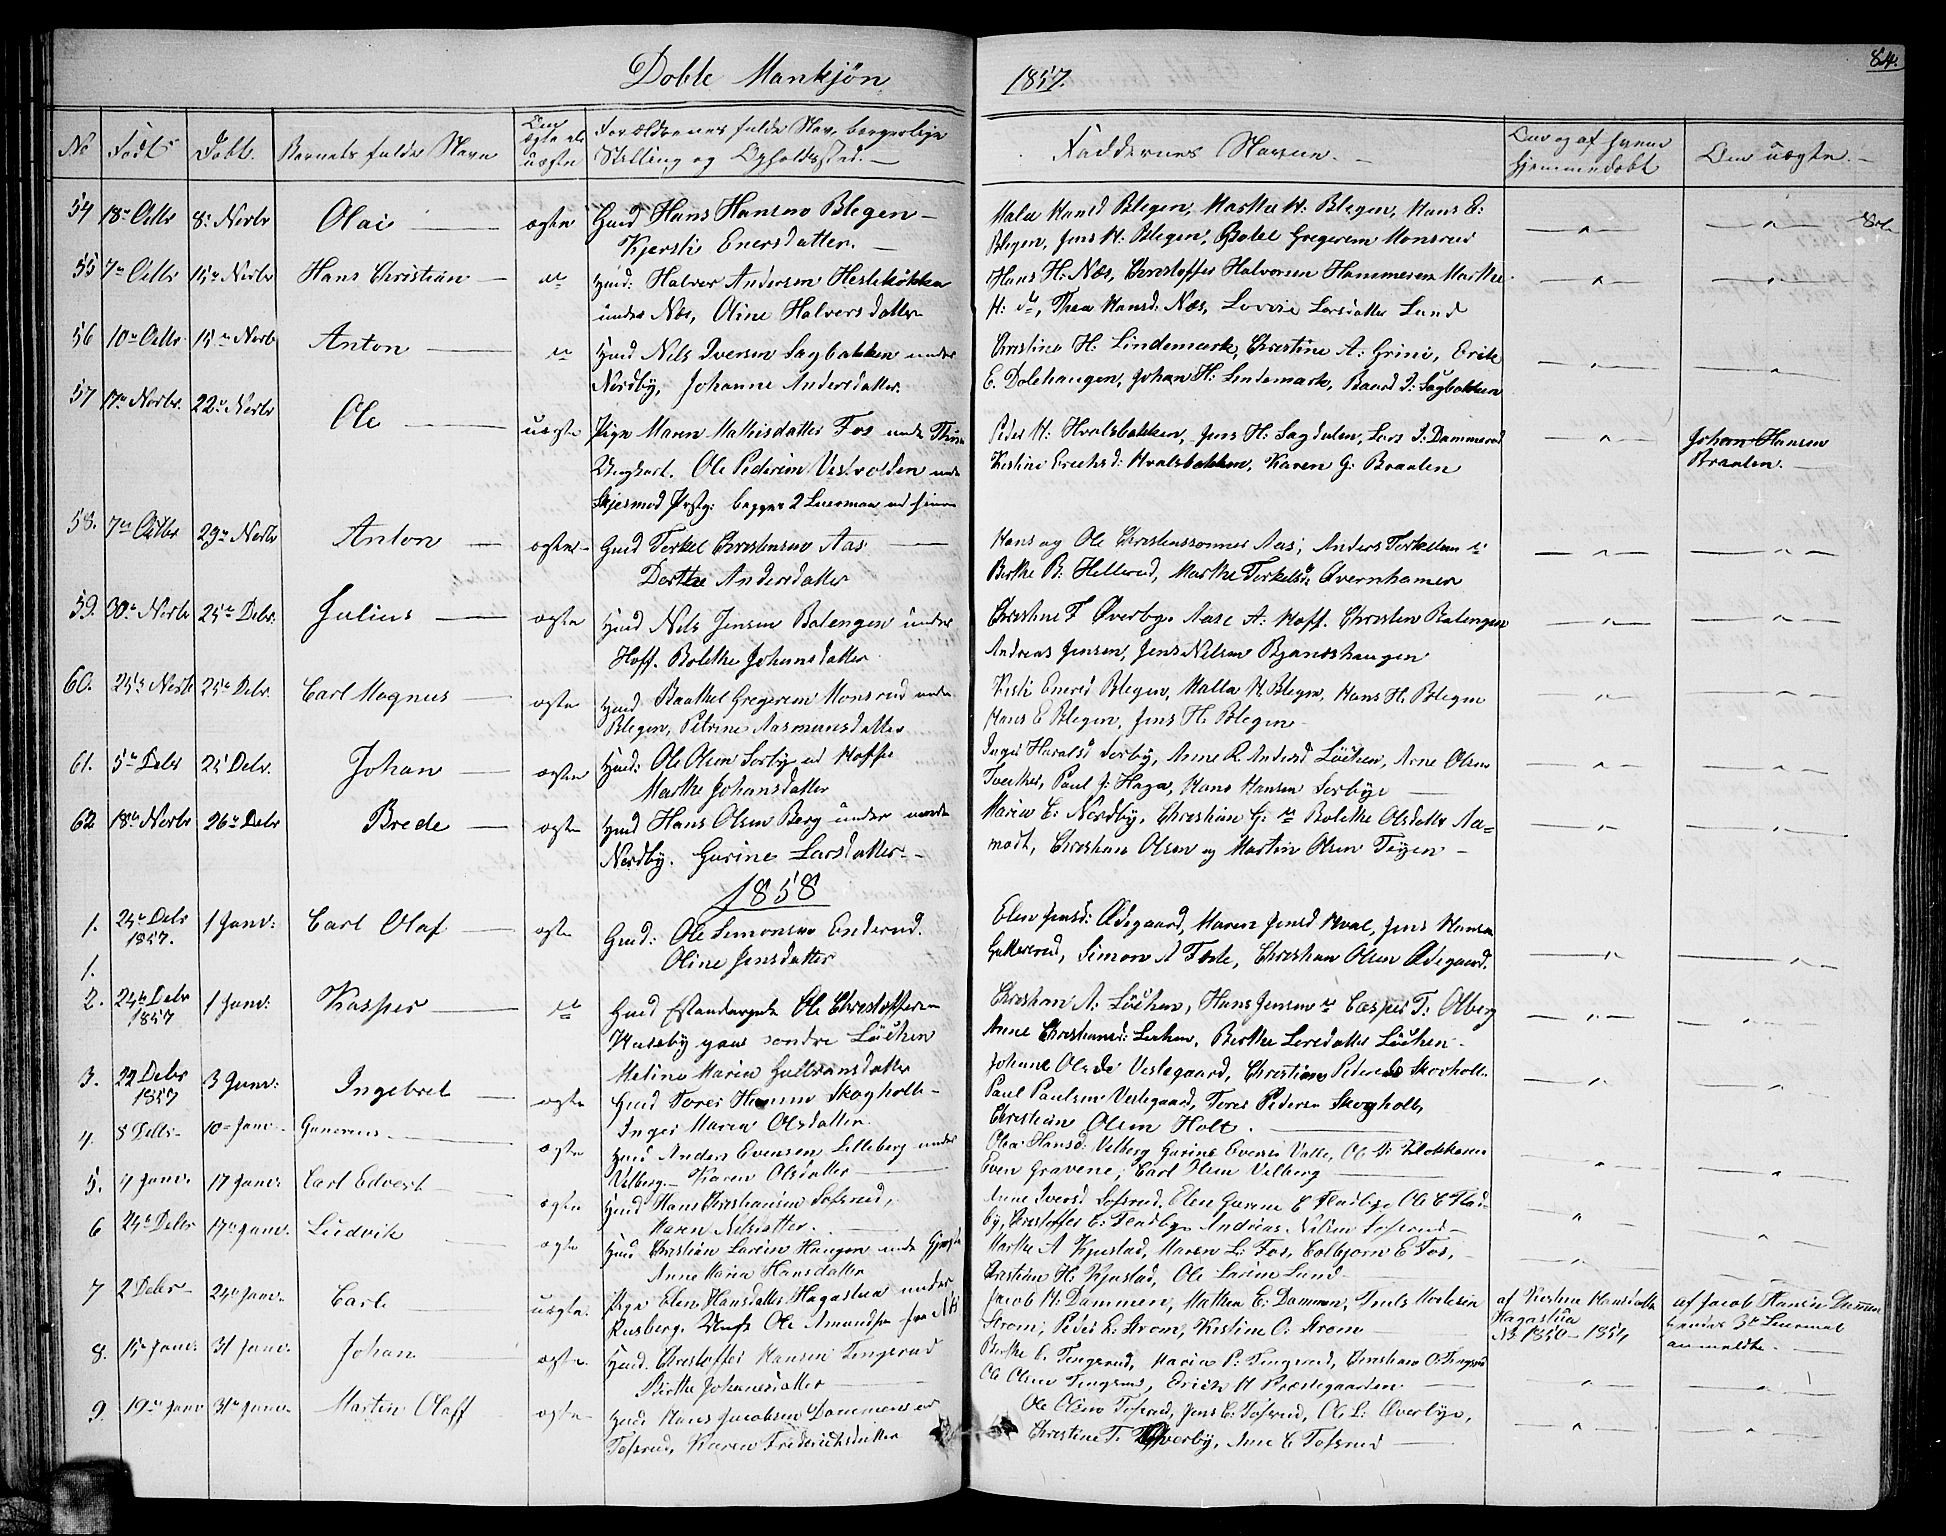 Døbte Mankjøn
1857.
84.
No
Født
Døbt.
Barnets fulde Navn
Om ægte el. uægte
Forældrenes fulde Navn, borgerlige
Stilling og Opholdssted.
Faddernes Navne.
Om og af hvem
hjemmedøbt
Om uægte.
54 18de Octbr 8de Novbr Olai ægte Gmd Hans Hansen Blegen
Kjersti Enersdatter.
Malea Hansd Blegen, Marthe H. Blegen, Hans E:
Blegen, Jens H. Blegen, Bolel Gregersen Monsrud
55 7de Octbr 15de Novbr Hans Christian do Hmd: Halvor Andersen Heslekøkken
under Næs, Oline Halvorsdatter
Hans H. Næs, Christoffer Halvorsen Hammeren Marthe
H: do, Thea Hansd: Næs, Lovise Larsdatter Lund
56 10de Octbr 15de Novbr Anton do Hmd Nils Iversen Sagbakken under
Nordby, Johanne Andersdatter.
Christine H: Lindemark, Christine A: Grini, Erik
E. Dolehaugen, Johan H: Lindemark, Baard I: Sagbakken
57 17de Novbr. 22de Novbr Ole uægte Pige Maren Mathisdatter Fos
Ole Pedersen Vestvolden
begges 2 Leiermaal
Peder H: Hvalsbakken, Jens H: Sagdalen, Lars I: Dammerud
Kirstine Erichsd: Hvalsbakken, Karen G: Braaten
Johan Hansen
Braaten.
58. 7de Octbr 29de Novbr Anton ægte Gmd Torkel Christensen Aas
Dorthe Andersdatter
Hans og Ole Christenssønner Aas, Anders Torkelsen do
Berthe B: Hellerud, Marthe Torkelsd Øvernhamer
59. 30de Novbr 25de Debr. Julius ægte Hmd Nels Jensen Balengen under
Hoff. Bolethe Johansdatter
Christine F Øverby, Aase A: Hoff. Christen Balengen
Andreas Jensen, Jens Nelsen Brandshaugen
60. 25de Novbr 25de Debr. Carl Magnus ægte Hmd Gregersen Monsrud under
Blegen, Petrine Aasmundsdatter
Kisti Enersd Blegen, Malla H Blegen, Hans H. Blegen
Hans E Blegen, Jens H. Blegen
61. 5te Debr 25 Debr. Johan ægte Hmd: Ole Olsen Sorby
Marthe Johansdatter
Inger Haralsd Sorby, Anne R. Andersd Løchen, Arne Olsen
Paul J. Haga, Hans Hansen Sorbye
62 18de Novbr 26de Debr Brede ægte Hmd Hans Olsen Berg under nordre
Nordby. Gurine Larsdatter
Maria E: Nordby, Christiane G: do Bolethe Olsdatter Aa=
modt, Christian Olsen og Martin Olsen Teigen
1858
1. 25de Debr 1857. 1 Janv: Carl Olaf ægte Gmd: Ole Simonsen Enderud.
Oline Jensdatter
Elen Jensd: Ødegaard, Maren Jensd Hval, Jens Hansen
Gulterud, Simon A Fosle, Christian Olsen Ødegaard.
1.
2. 24de Debr 1857 1 Janv: Kasper do Gmd Ole Christoffersen
Huseby søndre Løchen
Maline Maria Gulbransdatter
Christian A: Løchen, Hans Jensen do Casper T: Olberg
Anne Christiansd: Lechen. Berthe Larsdatter Løchen
3. 22 Debr 1857 3 Janv: Ingebret ægte Gmd Tores Hansen Skogholt
Inger Maren Olsdatter
Johanne Olsdr Vestegaard, Christian Pedersen Skovholt
Paul Paulsen Vestegaard, Tores Pedersen Skogholt,
Christian Olsen Holt.
4. 8 Debr 10de Janv Gunerius ægte Hmd Anders Evensen Lilleberg under
Velberg. Karen Olsdatter
Olea Hansd: Velberg Gurine Evensd Valle, Ole N: Klokkeren
Even Gravene, Carl Olsen Velberg
5. 4 Janv. 17 Janv: Carl Edvert ægte Hmd Hans Christiansen Tofsrud,
Karen Nilsdatter.
Anne Iversd Tofsrud, Elen Gurene E Fladbye Ole E Flad-
by, Christoffer E: Fladbye Andreas Nilsen Tofsrud
6 24de Debr 17de Janv. Ludvik ægte Hmd Christian Larsen Haugen
Anne Maria Hansdatter
Marthe A Kjustad, Maren L: Fos, Colbjørn E Fos,
Christian H: Kjustad, Ole Larsen Lund
7 2 Debr 24de Janv. Carl uægte. Pige Elen Hansdatter Hagastua under
Rusberg. Ole Amundsen fra
Jacob H: Dammen, Mathea E: Dammen, Truls Mortensen
Strøm, Peder E: Strøm, Kirstine O: Strøm
af Kirstine Hansdatter
Hagastua
No 1850-1854
af Jacob Hansen Dammen
hendes 3de Leiermaal
anmeldte.
8. 15 Janv. 31 Janv: Johan ægte. Hmd. Christoffer Hansen Tengsrud
Birthe Johannesdatter
Berthe C. Tengsrud, Maria P: Tengsrud, Christian O. Tengsrud
Ole Olsen Tengsrud, Erich H Præstegaarden
9. 19de Janv 31te Janv. Martin Olaff ægte Hmd Hans Jacobsen Dammen
Tofsrud, Karen Frederichsdatter
Ole Olsen Tofsrud, Jens E: Tofsrud, Ole L: Øverbye,
Christine F. Øverby, Anne E Tofsrud